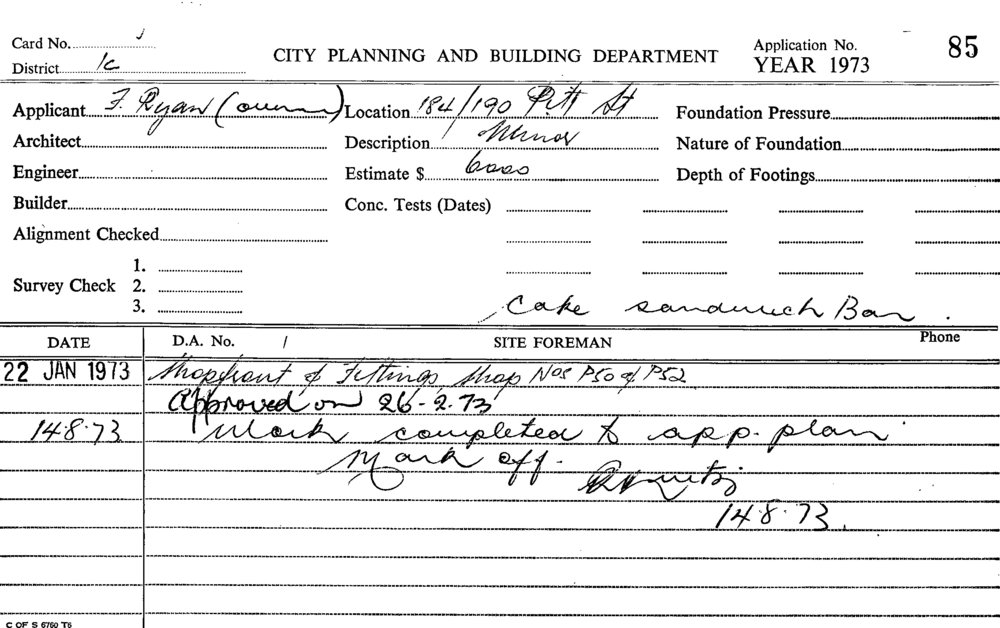 Card No. 1
District 1c
CITY PLANNING AND BUILDING DEPARTMENT
Application No. 85
YEAR 1973
Applicant F. Ryan (owner) Location 184/190 Pitt St Foundation Pressure
Architect Description Minor Nature of Foundation
Engineer Estimate $ 6000 Depth of Footings
Builder Conc. Tests (Dates)
Alignment Checked
Survey Check 1.
2.
3.
Cake Sandwich Bar.
DATE D.A. No. / SITE FOREMAN Phone
22 JAN 1973 Shopfront & Fittings, Shop Nos P50 & P52
Approved on 26-2-73
14.8.73 Work completed to app. plan
Mark off.
14.8.73.
C OF S 6760 T6